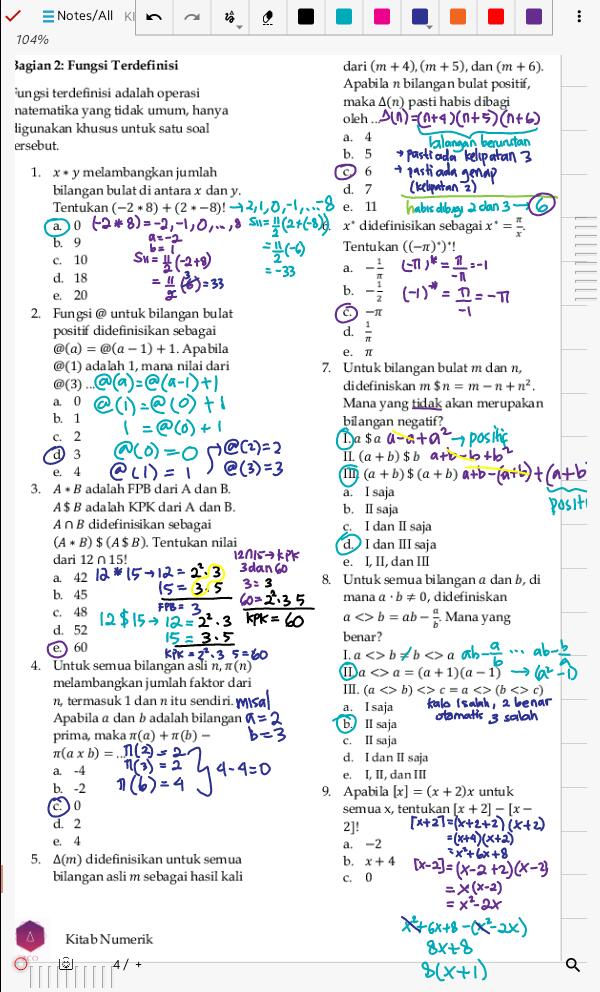 Notes/All KI
104%
Bagian 2: Fungsi Terdefinisi
Fungsi terdefinisi adalah operasi
matematika yang tidak umum, hanya
digunakan khusus untuk satu soal
tersebut.
1. x ∗ y melambangkan jumlah
bilangan bulat di antara x dan y.
Tentukan (−2 ∗ 8) + (2 ∗ −8)! → 2, 1, 0, -1, ..., -8
a. 0 (-2 * 8) = -2, -1, 0, ..., 8 S11 = 11/2 (2+(-8))
b. 9 a = -2 = 11/2 (-6)
b = 1 = -33
c. 10 S11 = 11/2 (-2+8)
d. 18 = 11/2 (6) = 33
e. 20
2. Fungsi @ untuk bilangan bulat
positif didefinisikan sebagai
@(a) = @(a − 1) + 1. Apabila
@(1) adalah 1, mana nilai dari
@(3) ... @(a) = @(a-1)+1
a. 0 @(1) = @(0) + 1
b. 1 1 = @(0) + 1
c. 2
d. 3 @(0) = 0 @(2) = 2
e. 4 @(1) = 1 @(3) = 3
3. A ∗ B adalah FPB dari A dan B.
A $ B adalah KPK dari A dan B.
A ∩ B didefinisikan sebagai
(A ∗ B) $ (A $ B). Tentukan nilai
dari 12 ∩ 15! 12∩15 → KPK
3 dan 60
a. 42 12 * 15 → 12 = 2².3 3 = 3
b. 45 15 = 3.5 60 = 2².3.5
FPB = 3 KPK = 60
c. 48 12 $ 15 → 12 = 2².3
d. 52 15 = 3.5
e. 60 KPK = 2².3.5 = 60
4. Untuk semua bilangan asli n, π(n)
melambangkan jumlah faktor dari
n, termasuk 1 dan n itu sendiri. misal
Apabila a dan b adalah bilangan a = 2
prima, maka π(a) + π(b) − b = 3
π(a x b) = ... π(2) = 2
a. -4 π(3) = 2 4-4=0
b. -2 π(6) = 4
c. 0
d. 2
e. 4
5. Δ(m) didefinisikan untuk semua
bilangan asli m sebagai hasil kali
Kitab Numerik
4 / +
dari (m + 4), (m + 5), dan (m + 6).
Apabila n bilangan bulat positif,
maka Δ(n) pasti habis dibagi
oleh ... Δ(n) = (n+4)(n+5)(n+6)
a. 4 bilangan berurutan
b. 5 → pasti ada kelipatan 3
c. 6 → pasti ada genap
d. 7 (kelipatan 2)
e. 11 habis dibagi 2 dan 3 → 6
x* didefinisikan sebagai x* = π/x.
Tentukan ((−π)*)*!
a. −1/π (-π)* = π/-π = -1
b. −1/2 (-1)* = π/-1 = -π
c. −π
d. 1/π
e. π
7. Untuk bilangan bulat m dan n,
didefiniskan m $ n = m − n + n².
Mana yang tidak akan merupakan
bilangan negatif?
I. a $ a a-a+a² → positif
II. (a + b) $ b a+b-b+b²
III. (a + b) $ (a + b) a+b-(a+b)+(a+b
a. I saja positi
b. II saja
c. I dan II saja
d. I dan III saja
e. I, II, dan III
8. Untuk semua bilangan a dan b, di
mana a · b ≠ 0, didefinisikan
a <> b = ab − a/b. Mana yang
benar?
I. a <> b ≠ b <> a ab-a/b ... ab-b/a
II. a <> a = (a + 1)(a − 1) → (a²-1)
III. (a <> b) <> c = a <> (b <> c)
a. I saja kalo 1 salah, 2 benar
b. II saja otomatis 3 salah
c. II saja
d. I dan II saja
e. I, II, dan III
9. Apabila [x] = (x + 2)x untuk
semua x, tentukan [x + 2] − [x −
2]! [x+2] = (x+2+2)(x+2)
= (x+4)(x+2)
a. −2 = x²+6x+8
b. x + 4 [x-2] = (x-2+2)(x-2)
c. 0 = x(x-2)
= x²-2x
x²+6x+8-(x²-2x)
8x+8
8(x+1)